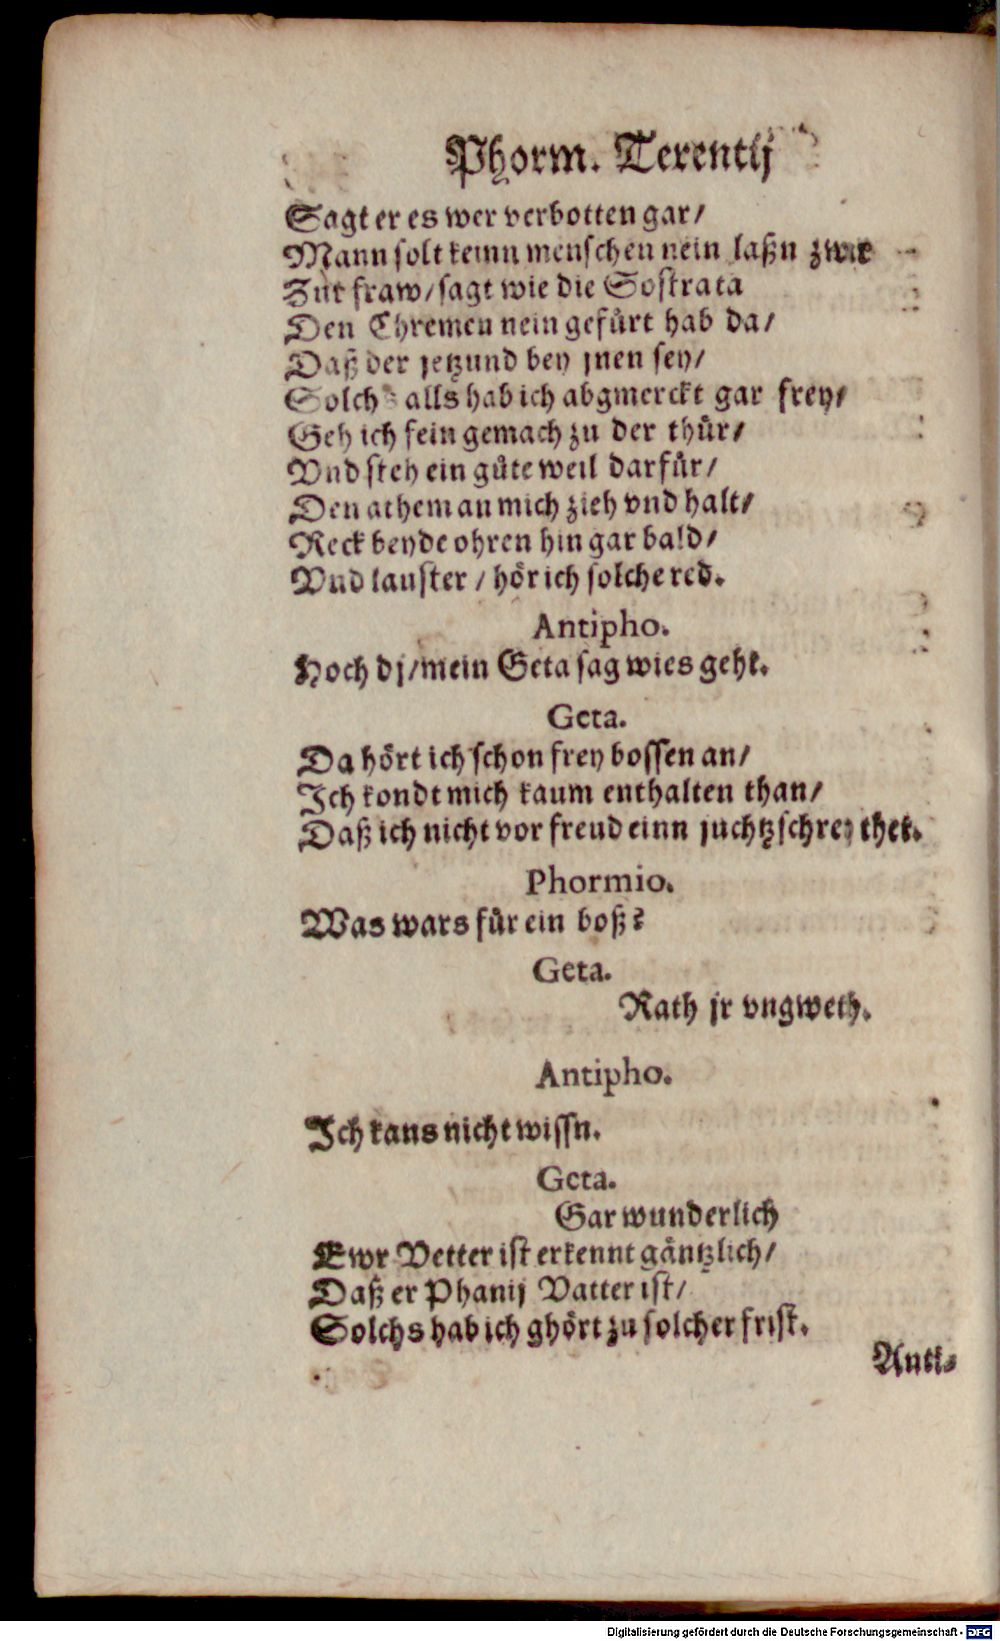 Phorm. Terentij
Sagt er es wer verbotten gar/
Mann solt keinn menschen nein laßn zwar
Zur fraw/sagt wie die Sostrata
Den Chremen nein gefürt hab da/
Daß der jetzund bey jnen sey/
Solchs alls hab ich abgmerckt gar frey/
Geh ich fein gemach zu der thür/
Vnd steh ein gůte weil darfür/
Den athem an mich zieh vnd halt/
Reck beyde ohren hin gar bald/
Vnd lauster / hör ich solche red.
Antipho.
Hoch dj/mein Geta sag wies geht.
Geta.
Da hört ich schon frey bossen an/
Ich kondt mich kaum enthalten than/
Daß ich nicht vor freud einn juchtzschrey thet.
Phormio.
Was wars für ein boß?
Geta.
Rath jr vngweth.
Antipho.
Ich kans nicht wissn.
Geta.
Gar wunderlich
Ewr Vetter ist erkennt gäntzlich/
Daß er Phanij Vatter ist/
Solchs hab ich ghört zu solcher frist.
Anti-
Digitalisierung gefördert durch die Deutsche Forschungsgemeinschaft - DFG